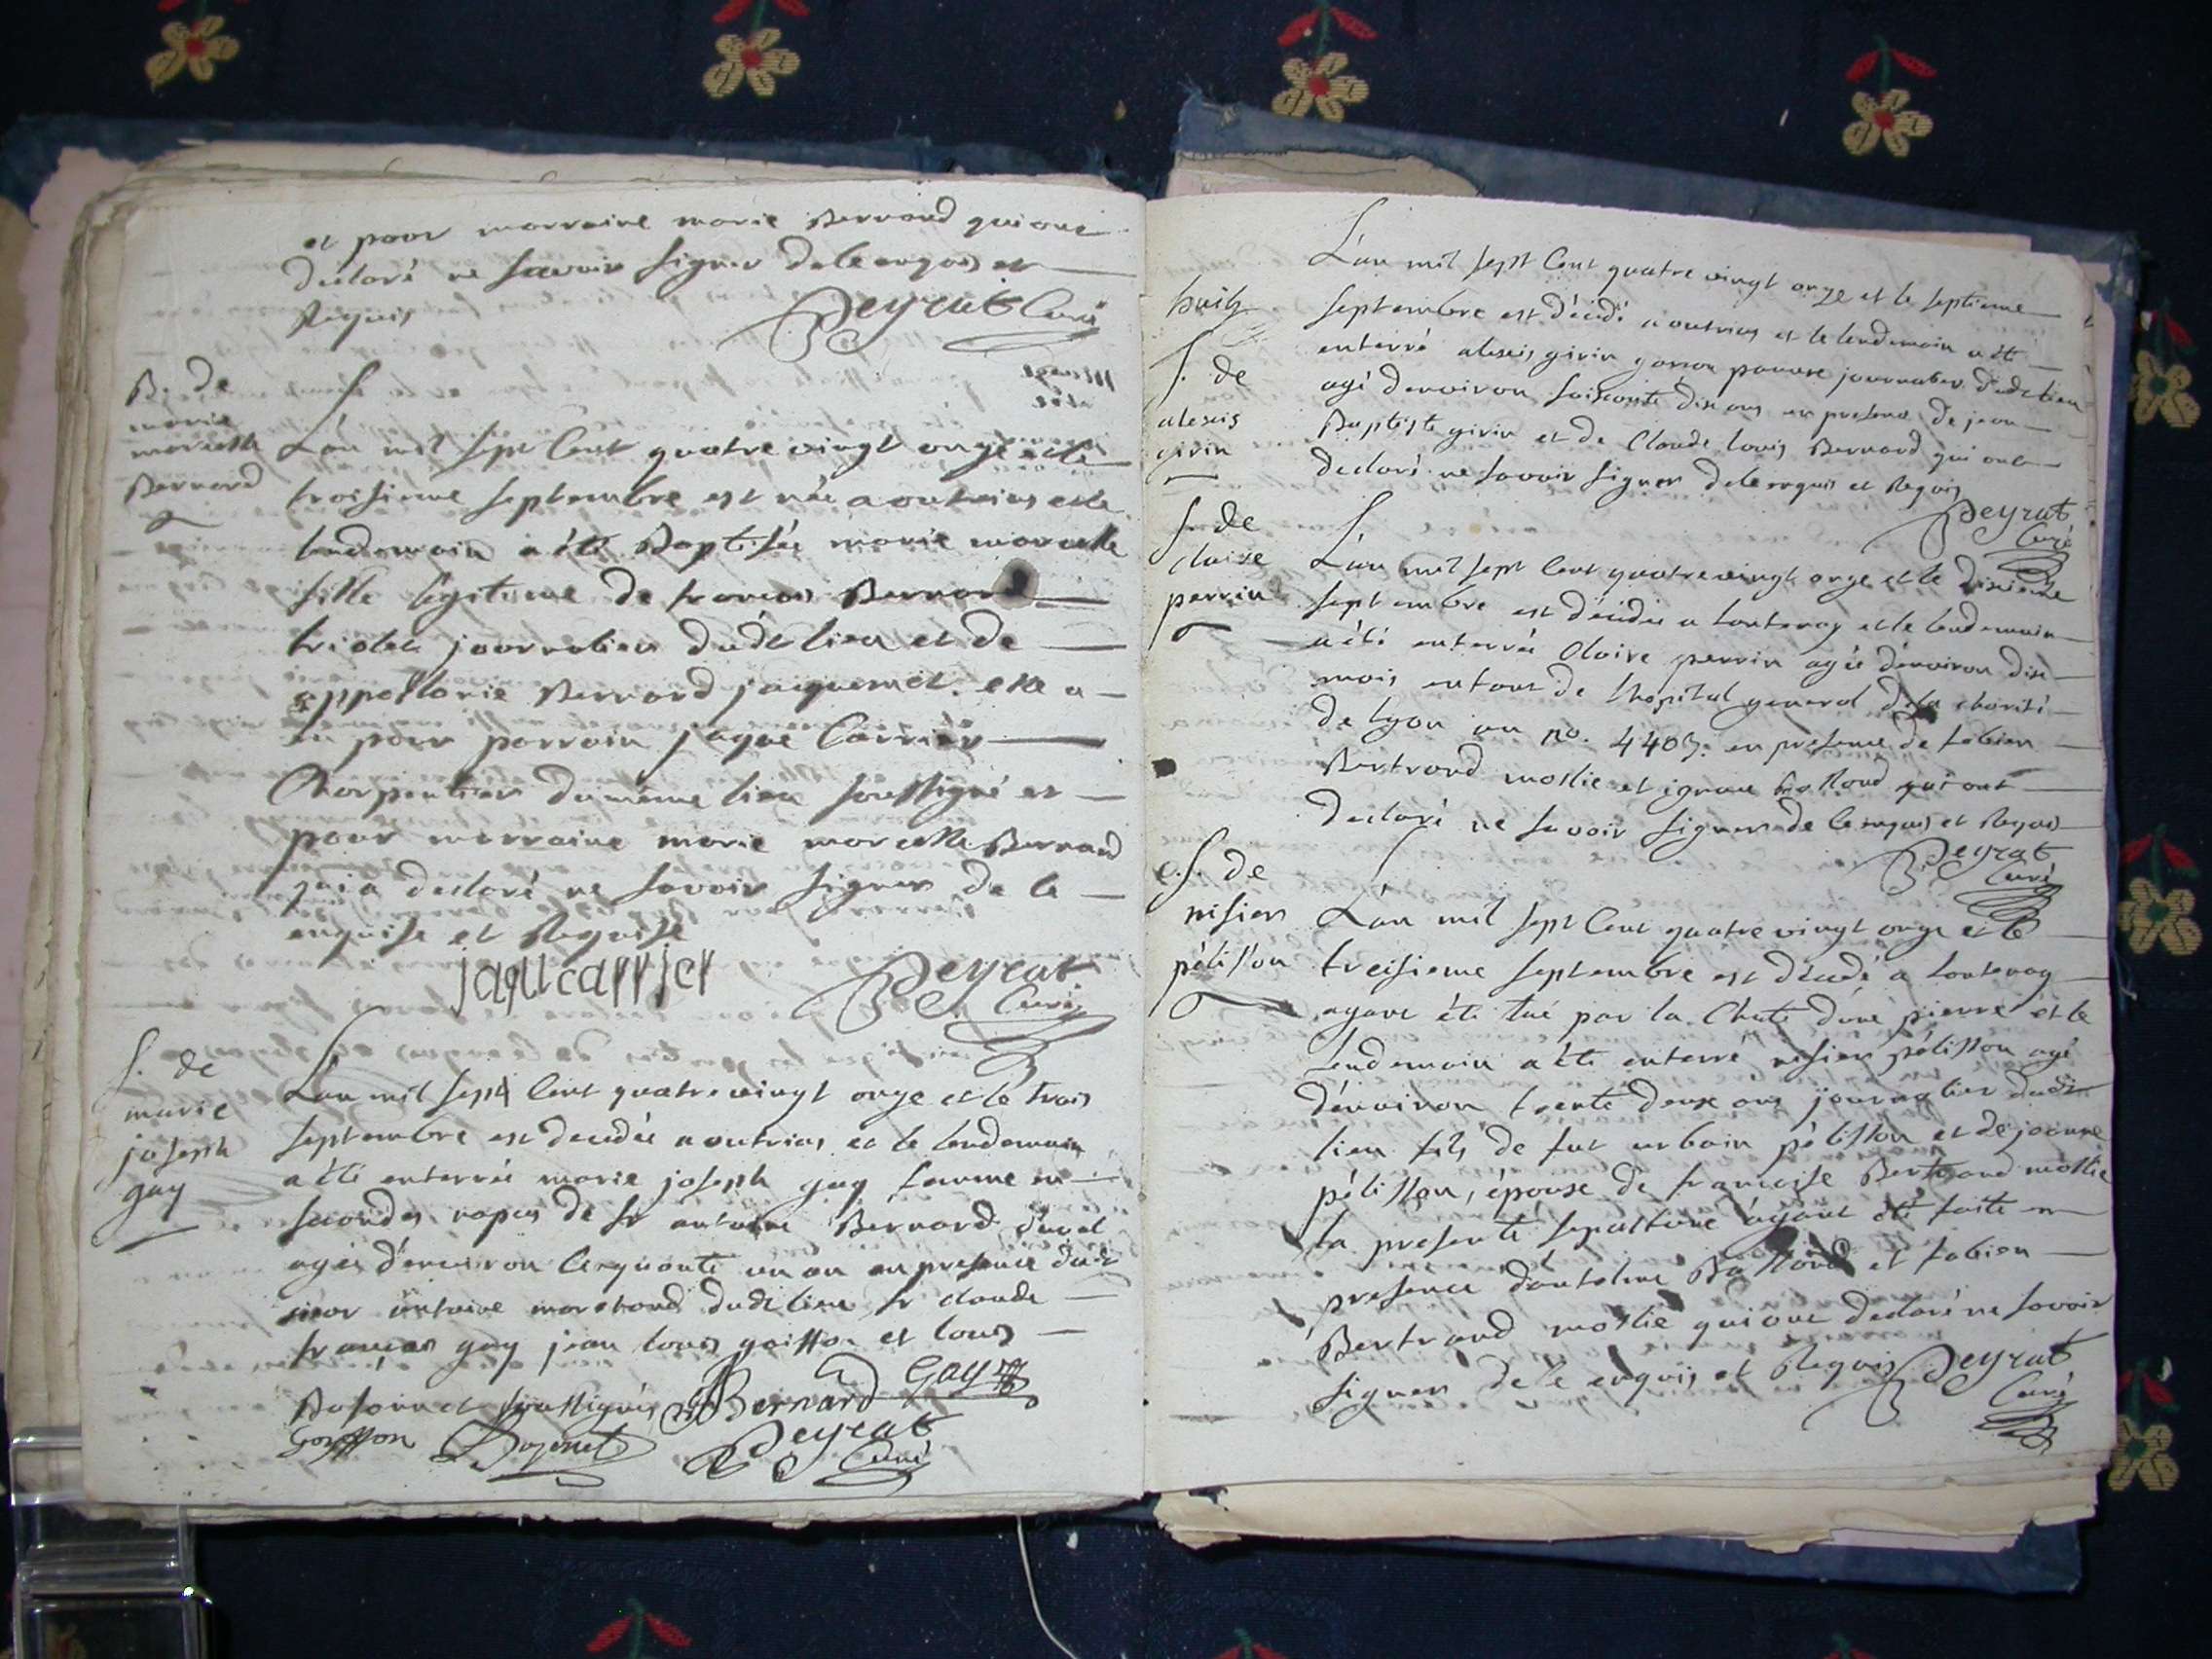 et pour marraine marie Bernard qui ont
declaré ne savoir signer de le enquis et
Requis
Peyrat Curé
B. de
marie
marcelle
Bernard
L'an mil sept Cent quatre vingt onze et le
troisieme septembre est née a outrias et le
lendemain a été Baptisée marie marcelle
fille légitime de francois Bernard
triolet journalier dudt lieu et de
appollonie Bernard jaquemet. elle a
eu pour parrain jaque Carrier
Charpentier du même lieu soussigné et
pour marraine marie marcelle Bernard
qui a declaré ne savoir signer de le
enquise et Requise
jaque carrier
Peyrat
Curé
S. de
marie
joseph
guy
L'an mil sept Cent quatre vingt onze et le trois
septembre est decedée a outrias et le lendemain
a été enterrée marie joseph guy femme en
secondes nopces de sr antoine Bernard duvet
agée d'environ cinquante un an en presence dudt
sieur antoine marchand dudt lieu sr claude
francois guy jean louis goiffon et louis
soussignés
Bernard Guy
Goiffon
Peyrat
Curé
huit
S. de
alexis
girin
L'an mil sept Cent quatre vingt onze et le septieme
septembre est décédé a outrias et le lendemain a été
enterré alexis girin garson pauvre journalier dudt lieu
agé d'environ soisconte dix ans en presence de jean
Baptiste girin et de Claude louis Bernard qui ont
declaré ne savoir signer de le enquis et Requis
Peyrat
Curé
S. de
claire
perrin
L'an mil sept Cent quatre vingt onze et le dixieme
septembre est décédée a lantenay et le lendemain
a été enterrée Claire perrin agée d'environ dix
mois enfant de l'hopital general de la charité
de lyon au no. 4403. en presence de fabien
Bertrand moslie et ignace balland qui ont
declaré ne savoir signer de le enquis et Requis
Peyrat
Curé
S. de
nisier
pélisson
L'an mil sept Cent quatre vingt onze et le
treisieme septembre est décédé a lantenay
ayant été tué par la Chute d'une pierre et le
lendemain a été enterré nisier pélisson agé
d'environ trente deux ans journalier dudt
lieu fils de fut urbain pélisson et de jeanne
pélisson, épouse de francoise Bertrand moslie
la presente sepulture ayant été faite en
presence d'antelme Balland et fabien
Bertrand moslie qui ont declaré ne savoir
signer de le enquis et Requis Peyrat
Curé